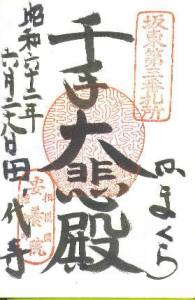 坂東第三番札所
かまくら
千手大悲殿
昭和六十二年
六月二十八日
田代寺
安養院